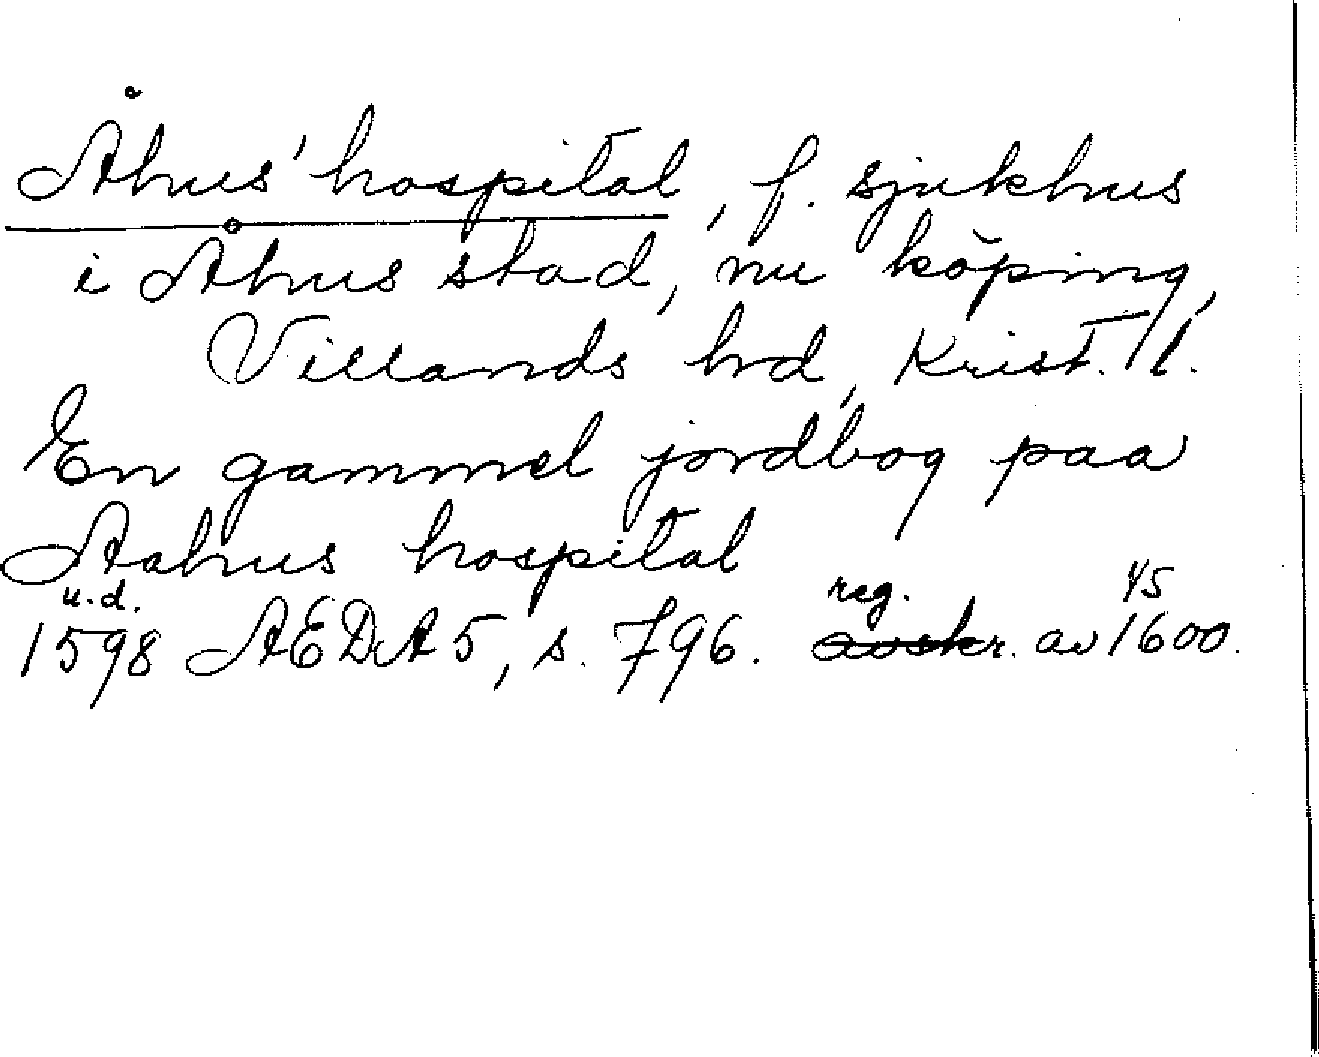 Åhus' hospital, f. sjukhus
i Åhus stad, nu köping,
Villands hd, Krist. l.
En gammel jordbog paa
Aahus hospital
u.d. reg. 45
1598 AEDA 5, s. 796. avskr. av 1600.